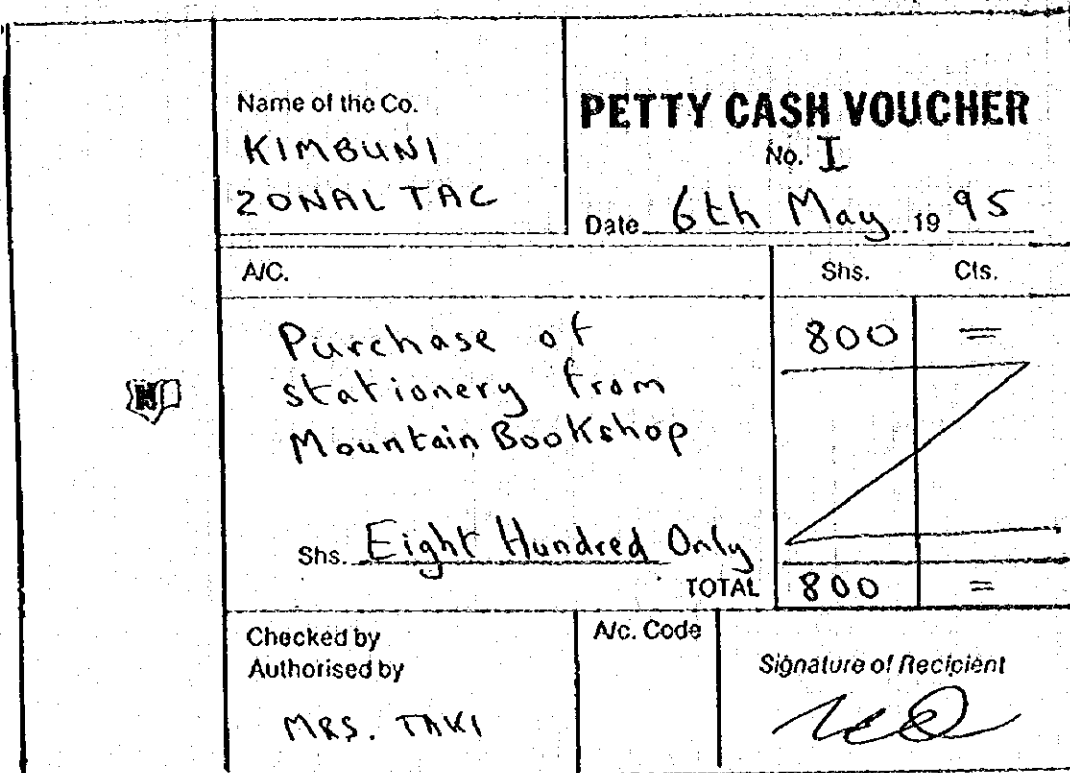 Name of the Co.
KIMBUNI
ZONAL TAC
PETTY CASH VOUCHER
No. I
Date 6th May 19 95
A/C. Shs. Cts.
Purchase of 800 =
stationery from
Mountain Bookshop
Shs. Eight Hundred Only
TOTAL 800 =
Checked by
Authorised by
MRS. TAKI
A/c. Code
Signature of Recipient